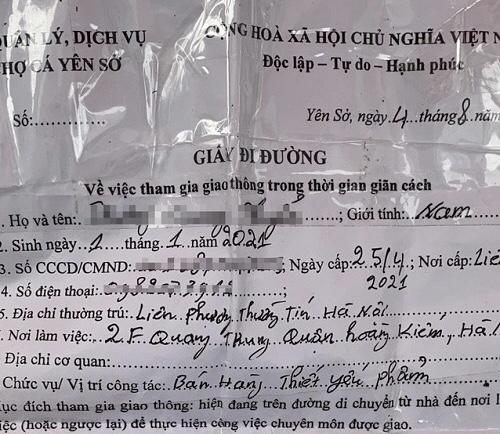 QUẢN LÝ, DỊCH VỤ
CỘNG HOÀ XÃ HỘI CHỦ NGHĨA VIỆT N
HỢ CÁ YÊN SỞ
Độc lập – Tự do – Hạnh phúc
Số:..............
Yên Sở, ngày 4 tháng 8 năm
GIẤY ĐI ĐƯỜNG
Về việc tham gia giao thông trong thời gian giãn cách
1. Họ và tên: ; Giới tính: Nam
2. Sinh ngày 1 tháng 1 năm 2021
3. Số CCCD/CMND: ; Ngày cấp: 25/4 2021; Nơi cấp: Liê
4. Số điện thoại:
5. Địa chỉ thường trú: Liên Phương Thường Tín Hà Nội
Nơi làm việc: 2.F. Quang Trung Quận hoàng Kiếm, Hà
Địa chỉ cơ quan:
Chức vụ/ Vị trí công tác: Bán Hàng Thiết yếu phẩm
ục đích tham gia giao thông: hiện đang trên đường di chuyển từ nhà đến nơi l
iệc (hoặc ngược lại) để thực hiện công việc chuyên môn được giao.